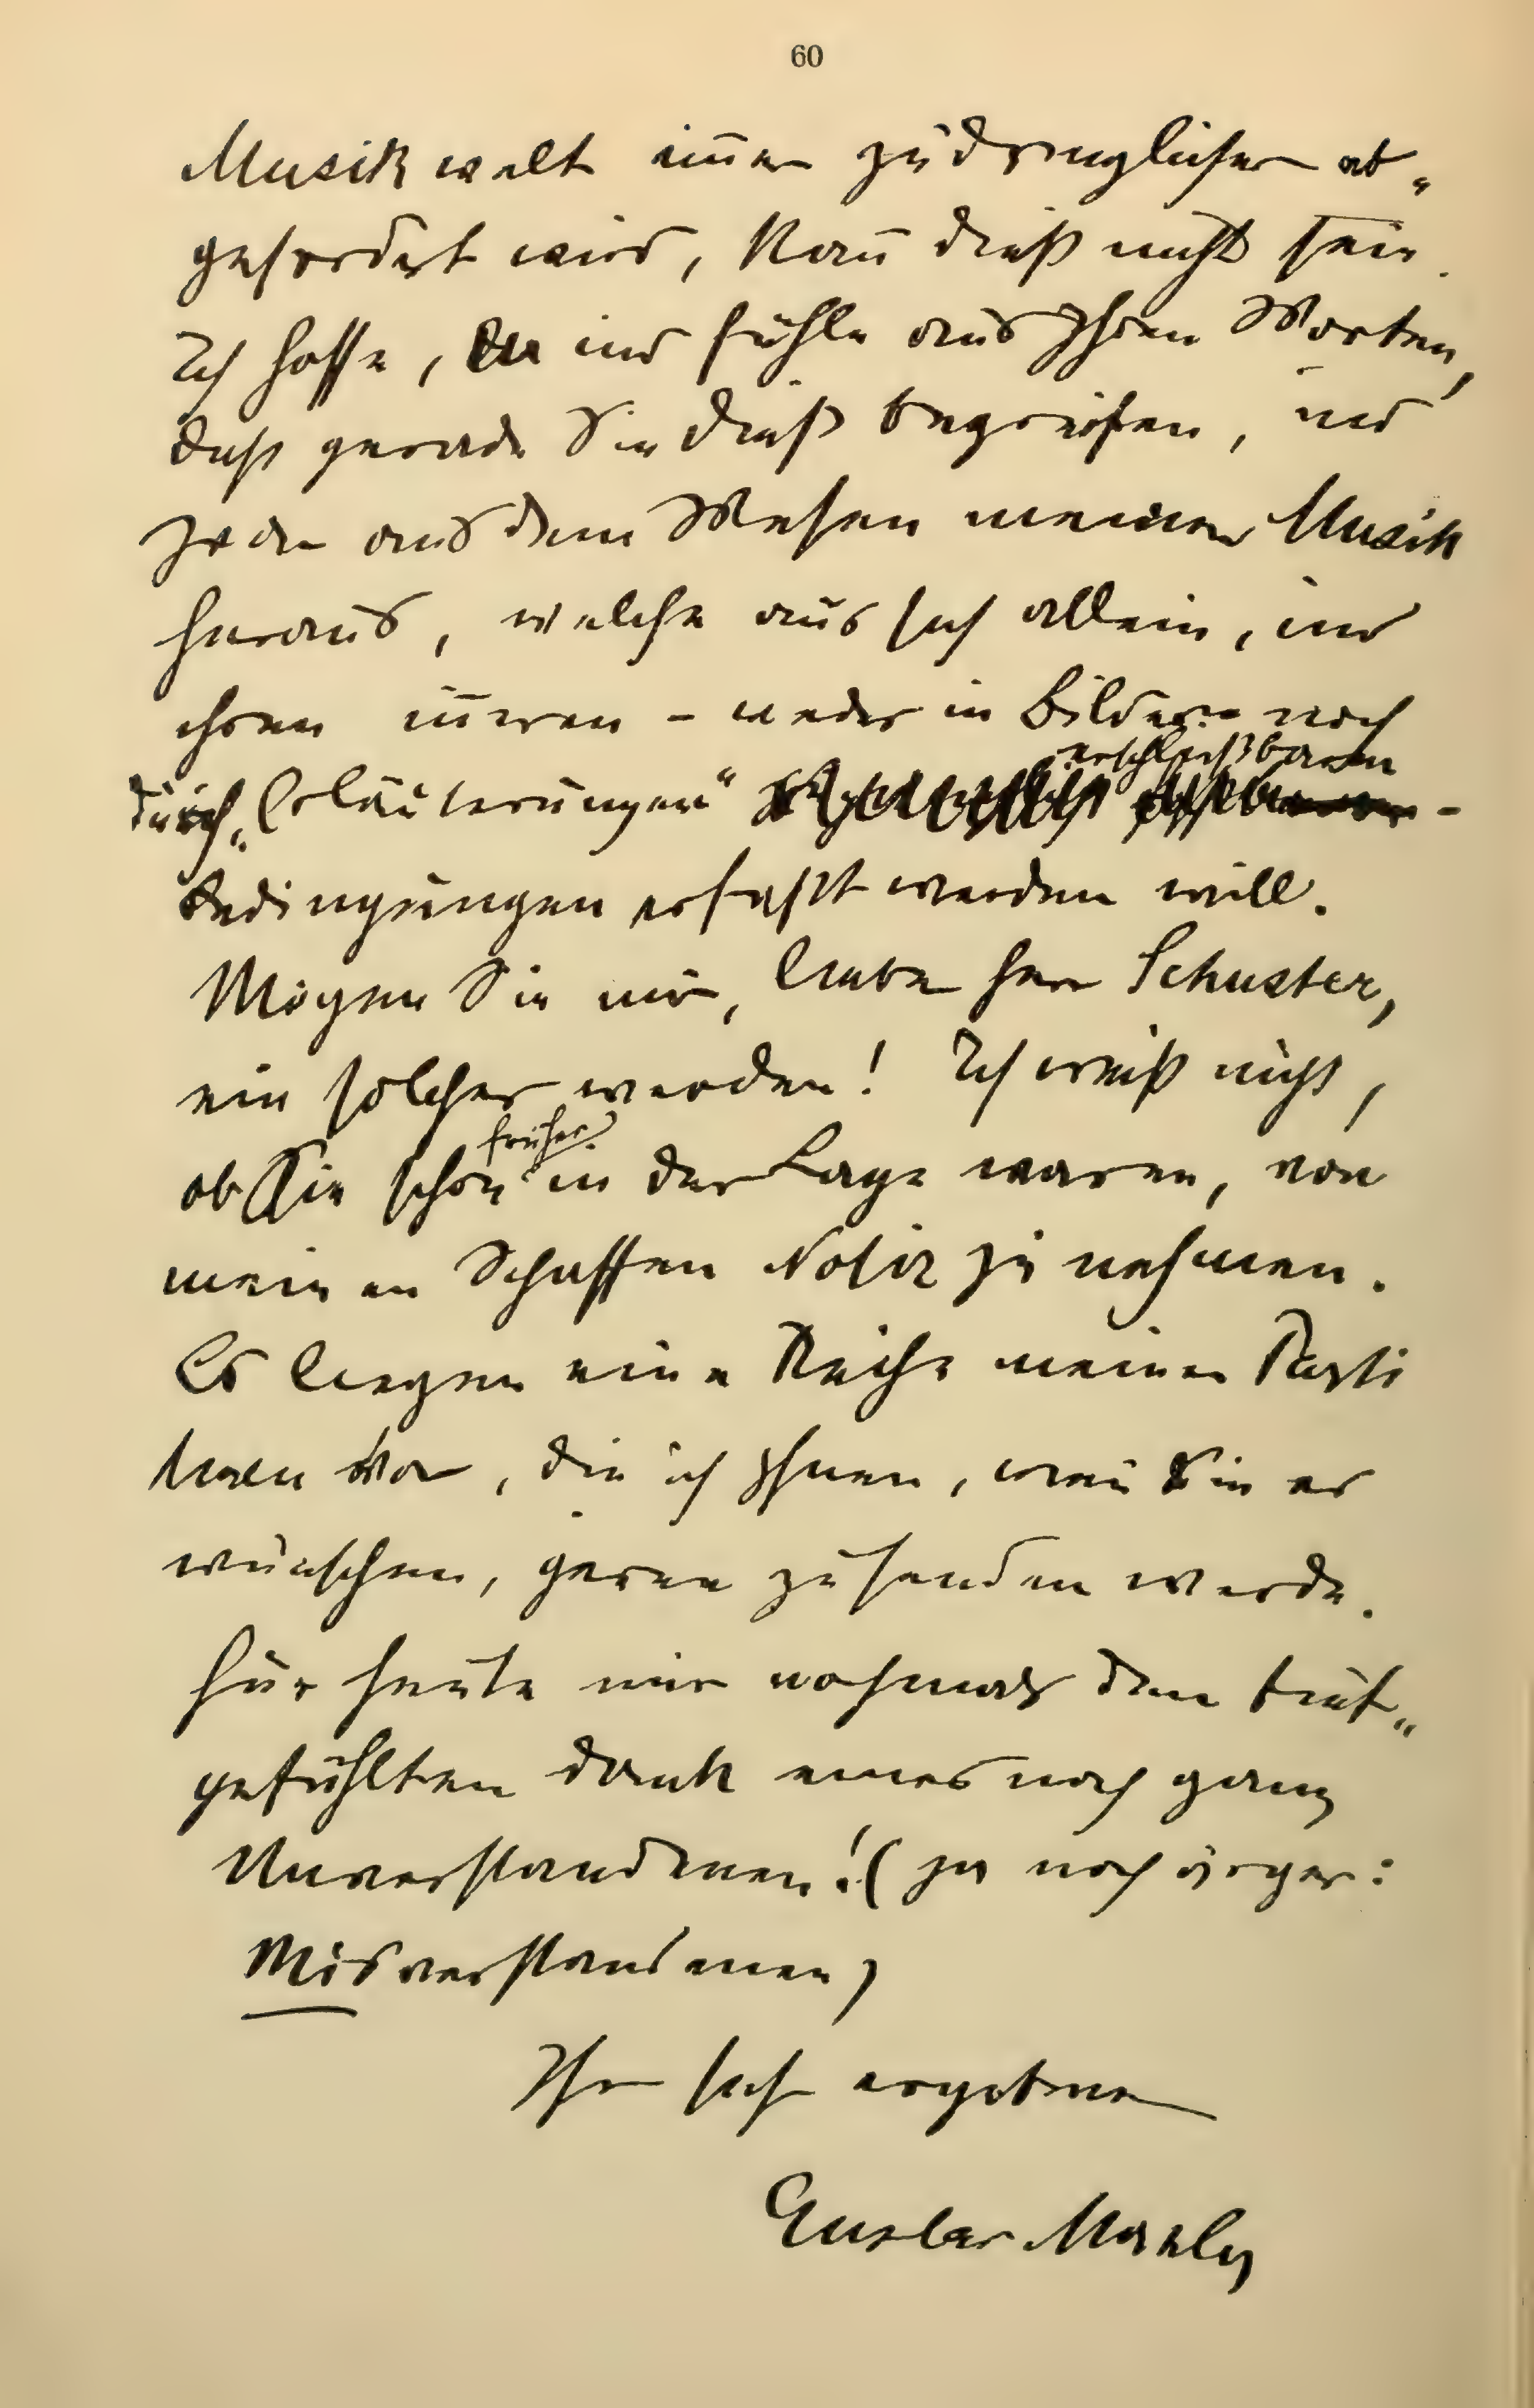 60
Musikwelt im̅er zudringlicher ab„
gefordert wird, kan̅ dieß nicht sein.
Ich hoffe, und fühle aus Ihren Worten,
daß gerade Sie dieß begreifen, und
zwar aus dem Wesen meiner Musik
heraus, welche aus sich allein, und
ihren in̅eren – weder in Bildern noch
erschließbaren
durch „Erläuterungen“ –
Bedingungen erfaßt werden will.
Mögen Sie mir, lieber Herr Schuster,
ein solcher werden! Ich weiß nicht,
früher
ob Sie schon in der Lage waren, von
meinen Schaffen Notiz zu nehmen.
Es liegen eine Reihe meiner Parti
turen vor, die ich Ihnen, wen̅ Sie es
wünschen, gerne zusenden werde.
Für heute nur nochmals den tief„
gefühlten Dank eines noch ganz
Unverstandenen! (ja noch ärger:
Misverstandenen)
Ihr sehr ergebener
Gustav Mahler